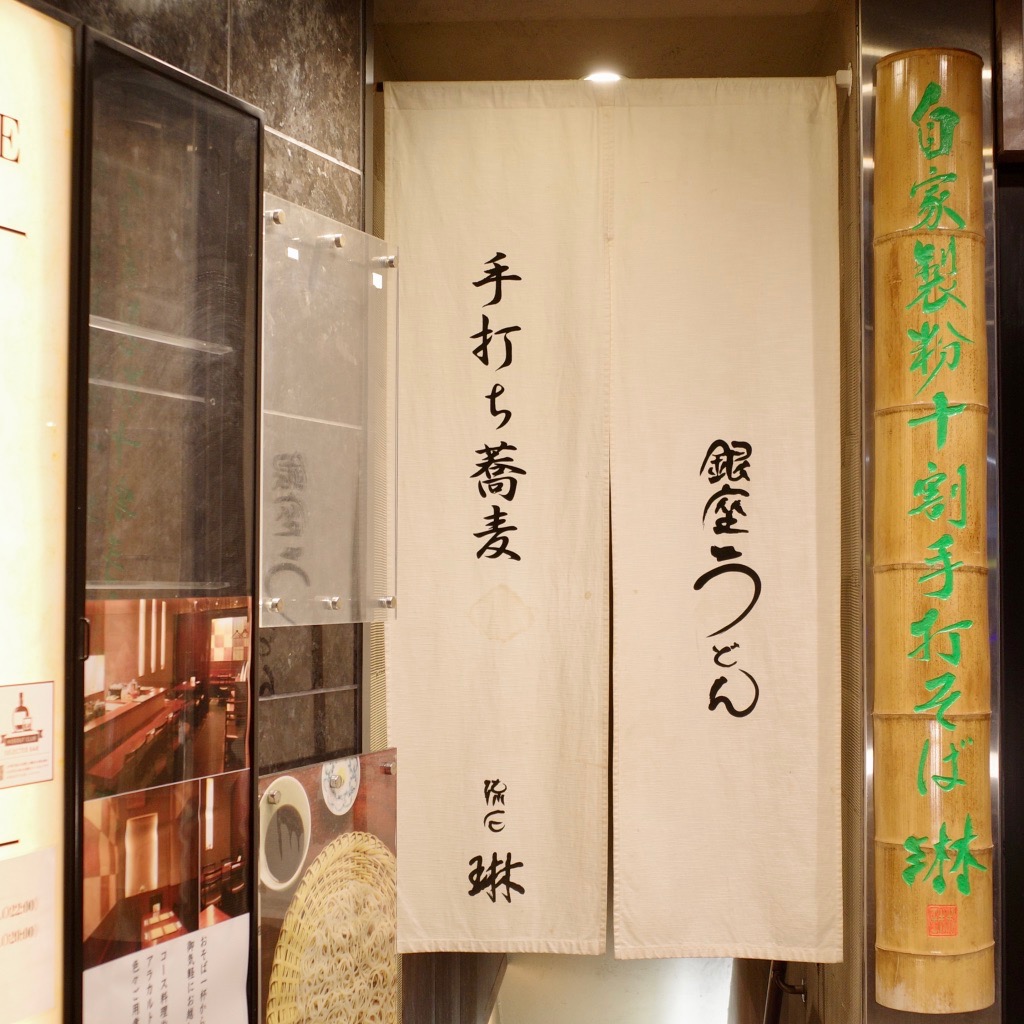 自家製粉十割手打そば
琳
銀座うどん
手打ち蕎麦
流石
琳
おそば一杯から
御気軽にお越
コース料理
アラカルト
色々ご用意
E
22:00
20:00